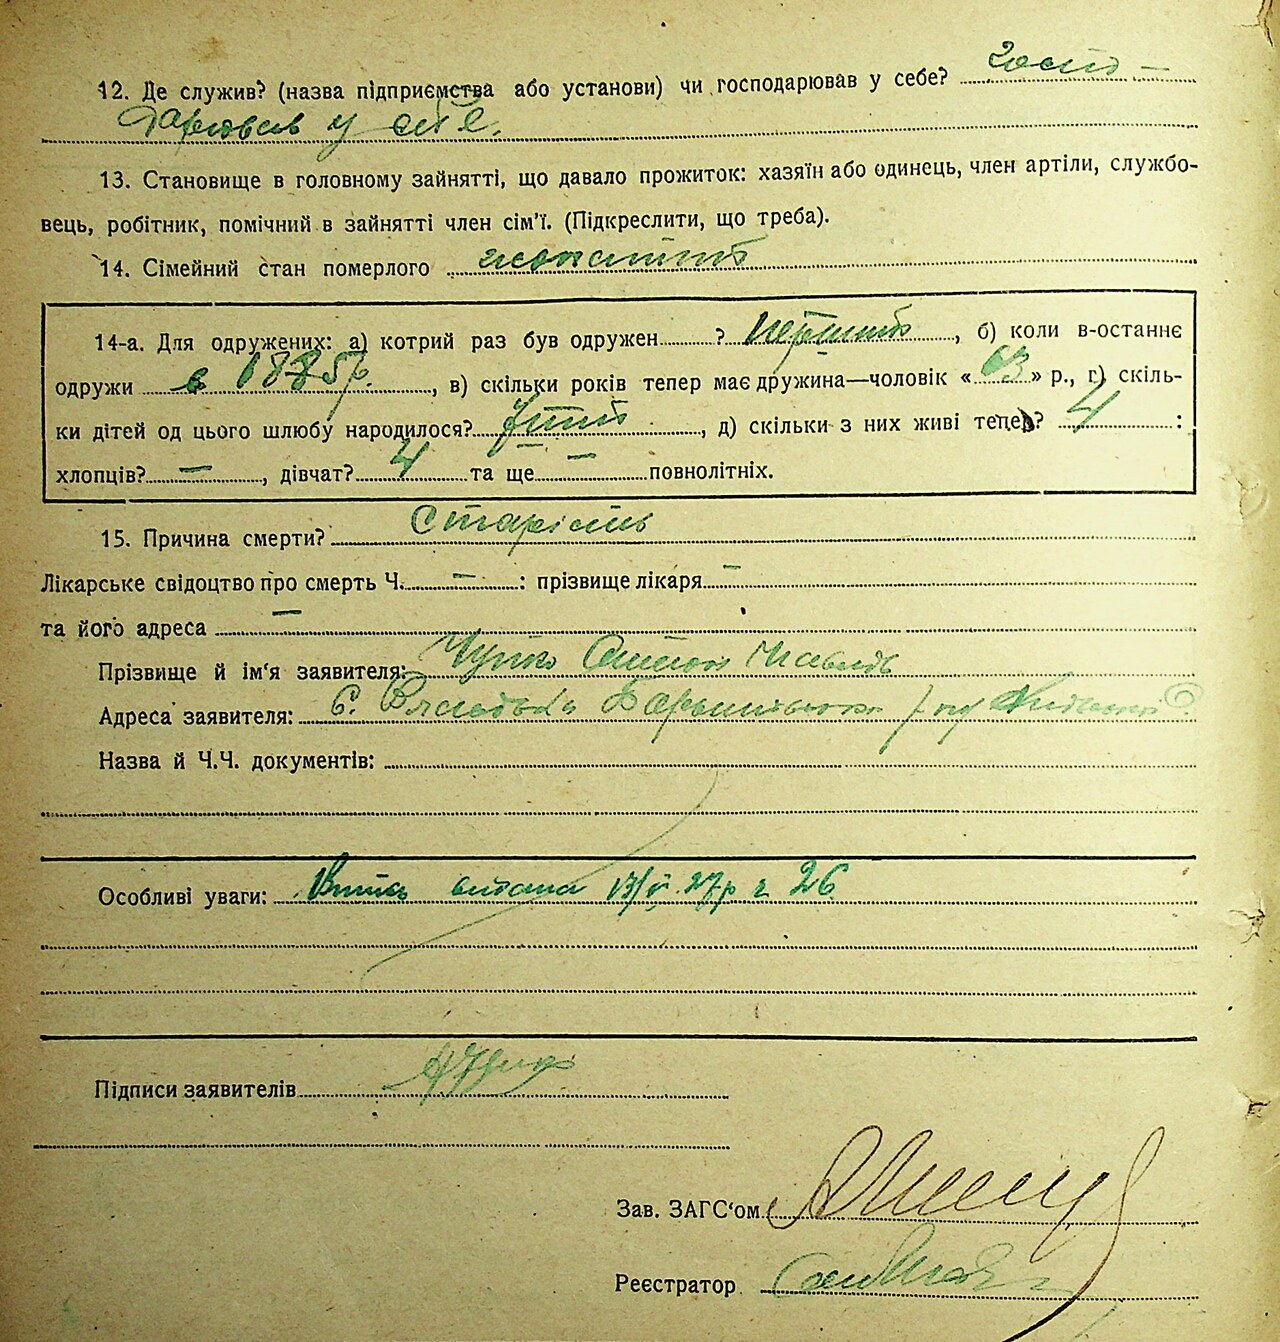 12. Де служив? (назва підприємства або установи) чи господарював у себе? госпо-
дарював у себе.
13. Становище в головному зайнятті, що давало прожиток: хазяїн або одинець, член артіли, службо-
вець, робітник, помічний в зайнятті член сім'ї. (Підкреслити, що треба).
14. Сімейний стан померлого жонатий
14-а. Для одружених: а) котрий раз був одружен ? перший, б) коли в-останнє
одружи в 1885р., в) скільки років тепер має дружина—чоловік «63» р., г) скіль-
ки дітей од цього шлюбу народилося? , д) скільки з них живі тепер? 4 :
хлопців? —, дівчат? 4 та ще — повнолітніх.
15. Причина смерти? Старість
Лікарське свідоцтво про смерть Ч. — : прізвище лікаря —
та його адреса —
Прізвище й ім'я заявителя:
Адреса заявителя: с.
Назва й Ч.Ч. документів:
Особливі уваги: видана 27р 26
Підписи заявителів
Зав. ЗАГС'ом
Реєстратор